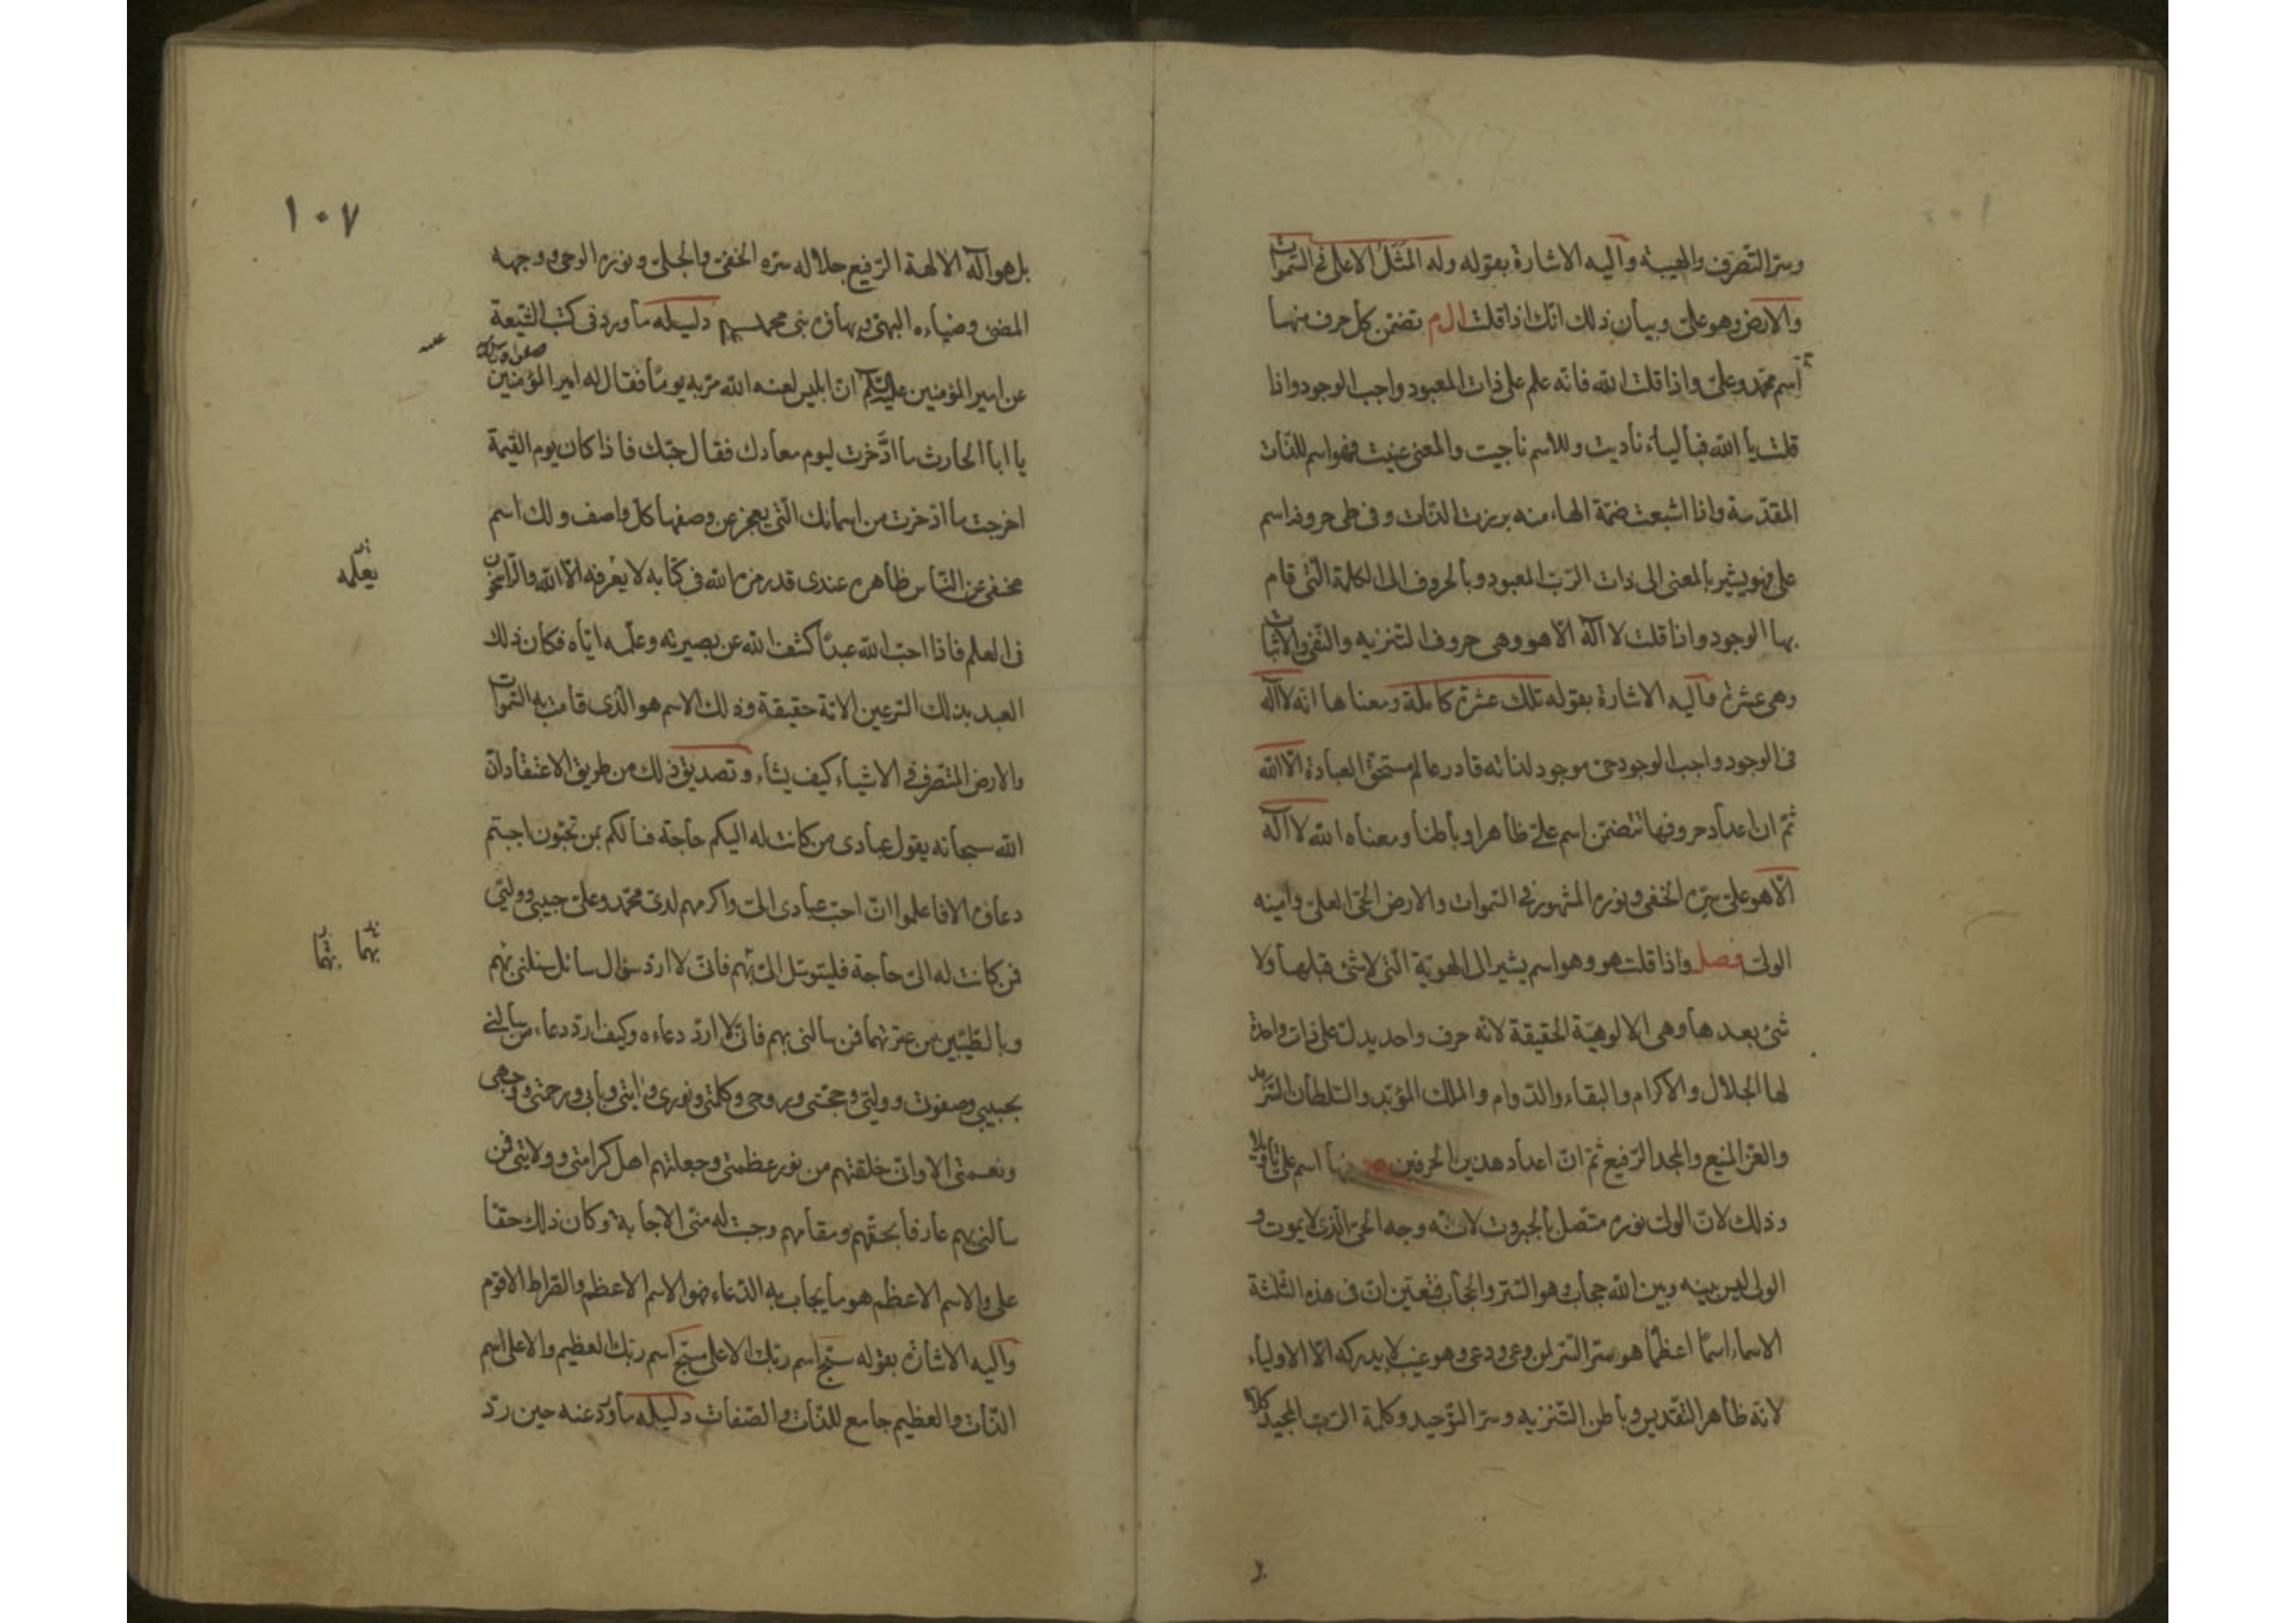 وسر التصرف والهيبة وآليه الاشارة بقوله وله المثل الاعلى في السموات
والارض وهو على وبيان ذلك انك اذا قلت ال م تضمن كل حرف منها
اسم محمد وعلى واذا قلت الله فانه علم على ذات المعبود واجب الوجود واذا
قلت يا الله فبالياء ناديت وللاسم ناجيت والمعنى عنيت فهو اسم للذات
المقدسة واذا اشبعت ضمة الهاء منه برزت الذات وفى طى حروفه اسم
على فهو يشير بالمعنى الى ذات الرب المعبود وبالحروف الى الكلمة التى قام
بها الوجود واذا قلت لا آله الا هو وهى حروف التنزيه والنفى والاثبات
وهى عشرة وآليه الاشارة بقوله تلك عشرة كاملة ومعناها انه لا آله
فى الوجود واجب الوجود حى موجود لذاته قادر عالم مستحق العبادة الا الله
ثم ان اعداد حروفها تتضمن اسم على ظاهرا وباطنا ومعناه الله لا آله
الا هو على سره الخفى ونوره المشهور فى السموات والارض الحى العلى وامينه
الولى فصل واذا قلت هو وهو اسم يشير الى الهوية التى لا شئ قبلها ولا
شئ بعدها وهى الالوهية الحقيقة لانه حرف واحد يدل على ذات واحدة
لها الجلال والاكرام والبقاء والدوام والملك المؤبد والسلطان السرمد
والعز المنيع والمجد الرفيع ثم ان اعداد هذين الحرفين منها اسم على تأويلا
وذلك لان الولى نوره متصل بالجبروت لانه وجه الحى الذى لا يموت و
الولى ليس بينه وبين الله حجاب وهو الستر والحجاب فتعين ان فى هذه الثلثة
الاسماء اسما اعظما هو سر السر لمن وعى ودعى وهو غيب لا يدركه الا الاولياء
لانه ظاهر التقديس وباطن التنزيه وسر التوحيد وكلمة الرب المجيد كلا
١٠٧
بل هو آله الالهة الرفيع جلاله سره الخفى والجلى ونوره الوحى ووجهه
المضئ وضياءه البهى وبهاؤه بنى محمد دليله ما ورد فى كتب الشيعة
عن امير المؤمنين عليه السلام ان ابليس لعنه الله مر به يوما فقال له امير المؤمنين
يا ابا الحارث ما ادخرت ليوم معادك فقال حبك فاذا كان يوم القيمة
اخرجت ما اذخرت من اسمائك التى يعجز عن وصفها كل واصف ولك اسم
مخفى عن الناس ظاهره عندى قد رمزه الله فى كتابه لا يعرفه الا الله والراسخون
يعلمه
فى العلم فاذا احب الله عبدا كشف الله عن بصيرته وعلمه اياه فكان ذلك
العبد بذلك السر عين الامة حقيقة وذلك الاسم هو الذى قامت به السموات
والارض المتصرف فى الاشياء كيف يشاء وتصديق ذلك من طريق الاعتقاد ان
الله سبحانه يقول عبادى من كانت له اليكم حاجة فسألكم بمن تحبون اجبتم
دعاه الا فاعلموا ان احب عبادى الى واكرمهم لدى محمد وعلى حبيبى ووليى
بهما بهما
فمن كانت له الى حاجة فليتوسل الى بهم فانى لا ارد سؤال سائل سئلنى بهم
وبالطيبين من عترتهما فمن سالنى بهم فانى لا ارد دعاءه وكيف ارد دعاء من سالنى
بحبيبى وصفوتى ووليى وحجتى وروحى وكلمتى ونورى وايتى وبابى ورحمتى ووجهى
ونعمتى الا وانى خلقتهم من نور عظمتى وجعلتهم اهل كرامتى وولايتى فمن
سالنى بهم عارفا بحقهم ومقامهم وجبت له منى الاجابة وكان ذلك حقا
على والاسم الاعظم هو ما يجاب به الدعاء فهو الاسم الاعظم والصراط الاقوم
وآليه الاشارة بقوله سبح اسم ربك الاعلى سبح اسم ربك العظيم والاعلى اسم
الذات والعظيم جامع للذات والصفات دليله ما ورد عنه حين رد